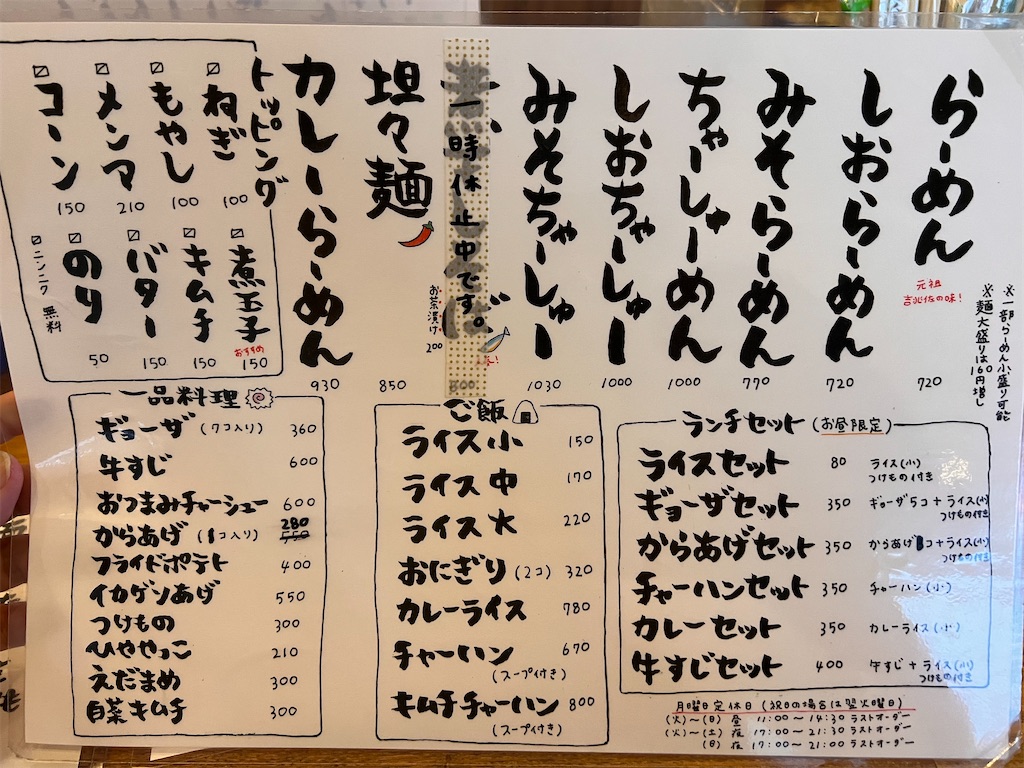 らーめん
元祖
吉兆佐の味!
720
しおらーめん
720
みそらーめん
770
ちゃーしゅーめん
1000
しおちゃーしゅー
1000
みそちゃーしゅー
1030
一時休止中です。
坦々麺
850
お茶漬け
200
カレーらーめん
930
※一部らーめん小盛り可能
※麺大盛りは160円増し
トッピング
ねぎ
100
もやし
100
メンマ
210
コーン
150
煮玉子
おすすめ
150
キムチ
150
バター
150
のり
50
ニンニク 無料
一品料理
ギョーザ (7コ入り) 360
牛すじ 600
おつまみチャーシュー 600
からあげ (1コ入り) 280
フライドポテト 400
イカゲソあげ 550
つけもの 300
ひややっこ 210
えだまめ 300
白菜キムチ 300
ご飯
ライス小 150
ライス中 170
ライス大 220
おにぎり (2コ) 320
カレーライス 780
チャーハン 670
(スープ付き)
キムチチャーハン 800
(スープ付き)
ランチセット (お昼限定)
ライスセット 80 ライス(小)
つけもの付き
ギョーザセット 350 ギョーザ5コ+ライス(小)
つけもの付き
からあげセット 350 からあげ1コ+ライス(小)
つけもの付き
チャーハンセット 350 チャーハン(小)
カレーセット 350 カレーライス(小)
牛すじセット 400 牛すじ+ライス(小)
つけもの付き
月曜日定休日(祝日の場合は翌火曜日)
(火)~(日) 昼 11:00~14:30 ラストオーダー
(火)~(土) 夜 17:00~21:30 ラストオーダー
(日) 夜 17:00~21:00 ラストオーダー